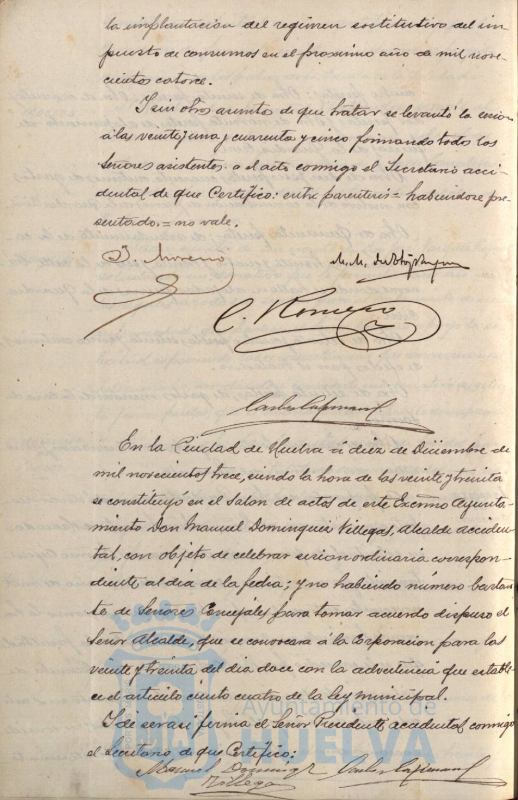 la implantación del regimen sustitutivo del im
puesto de consumos en el próximo año de mil nove-
cientos catorce.
I sin otro asunto de que tratar se levantó la sesion
á las veinte y una y cuarenta y cinco firmando todos los
Señores asistentes a el acto conmigo el Secretario acci-
dental de que Certifico: entre parentesis = habiendose pre
sentado. = no vale.
J. Moreno
M. M. de
C. Romero
Carlos
En la Ciudad de Huelva á diez de Diciembre de
mil novecientos trece, siendo la hora de las veinte y treinta
se constituyó en el Salon de actos de este Excmo Ayunta-
miento Don Manuel Dominguez Villegas, Alcalde acciden
tal, con objeto de celebrar sesion ordinaria correspon-
diente al dia de la fecha; y no habiendo número bastan
te de Señores Concejales para tomar acuerdo dispuso el
Señor Alcalde, que se convocara á la Corporacion para las
veinte y treinta del dia doce con la advertencia que estable-
ce el articulo ciento cuatro de la ley municipal.
I de ser asi firma el Señor Presidente accidental conmigo
el Secretario de que Certifico:
Manuel Domingz
Villegas
Carlos
Ayuntamiento de
HUELVA